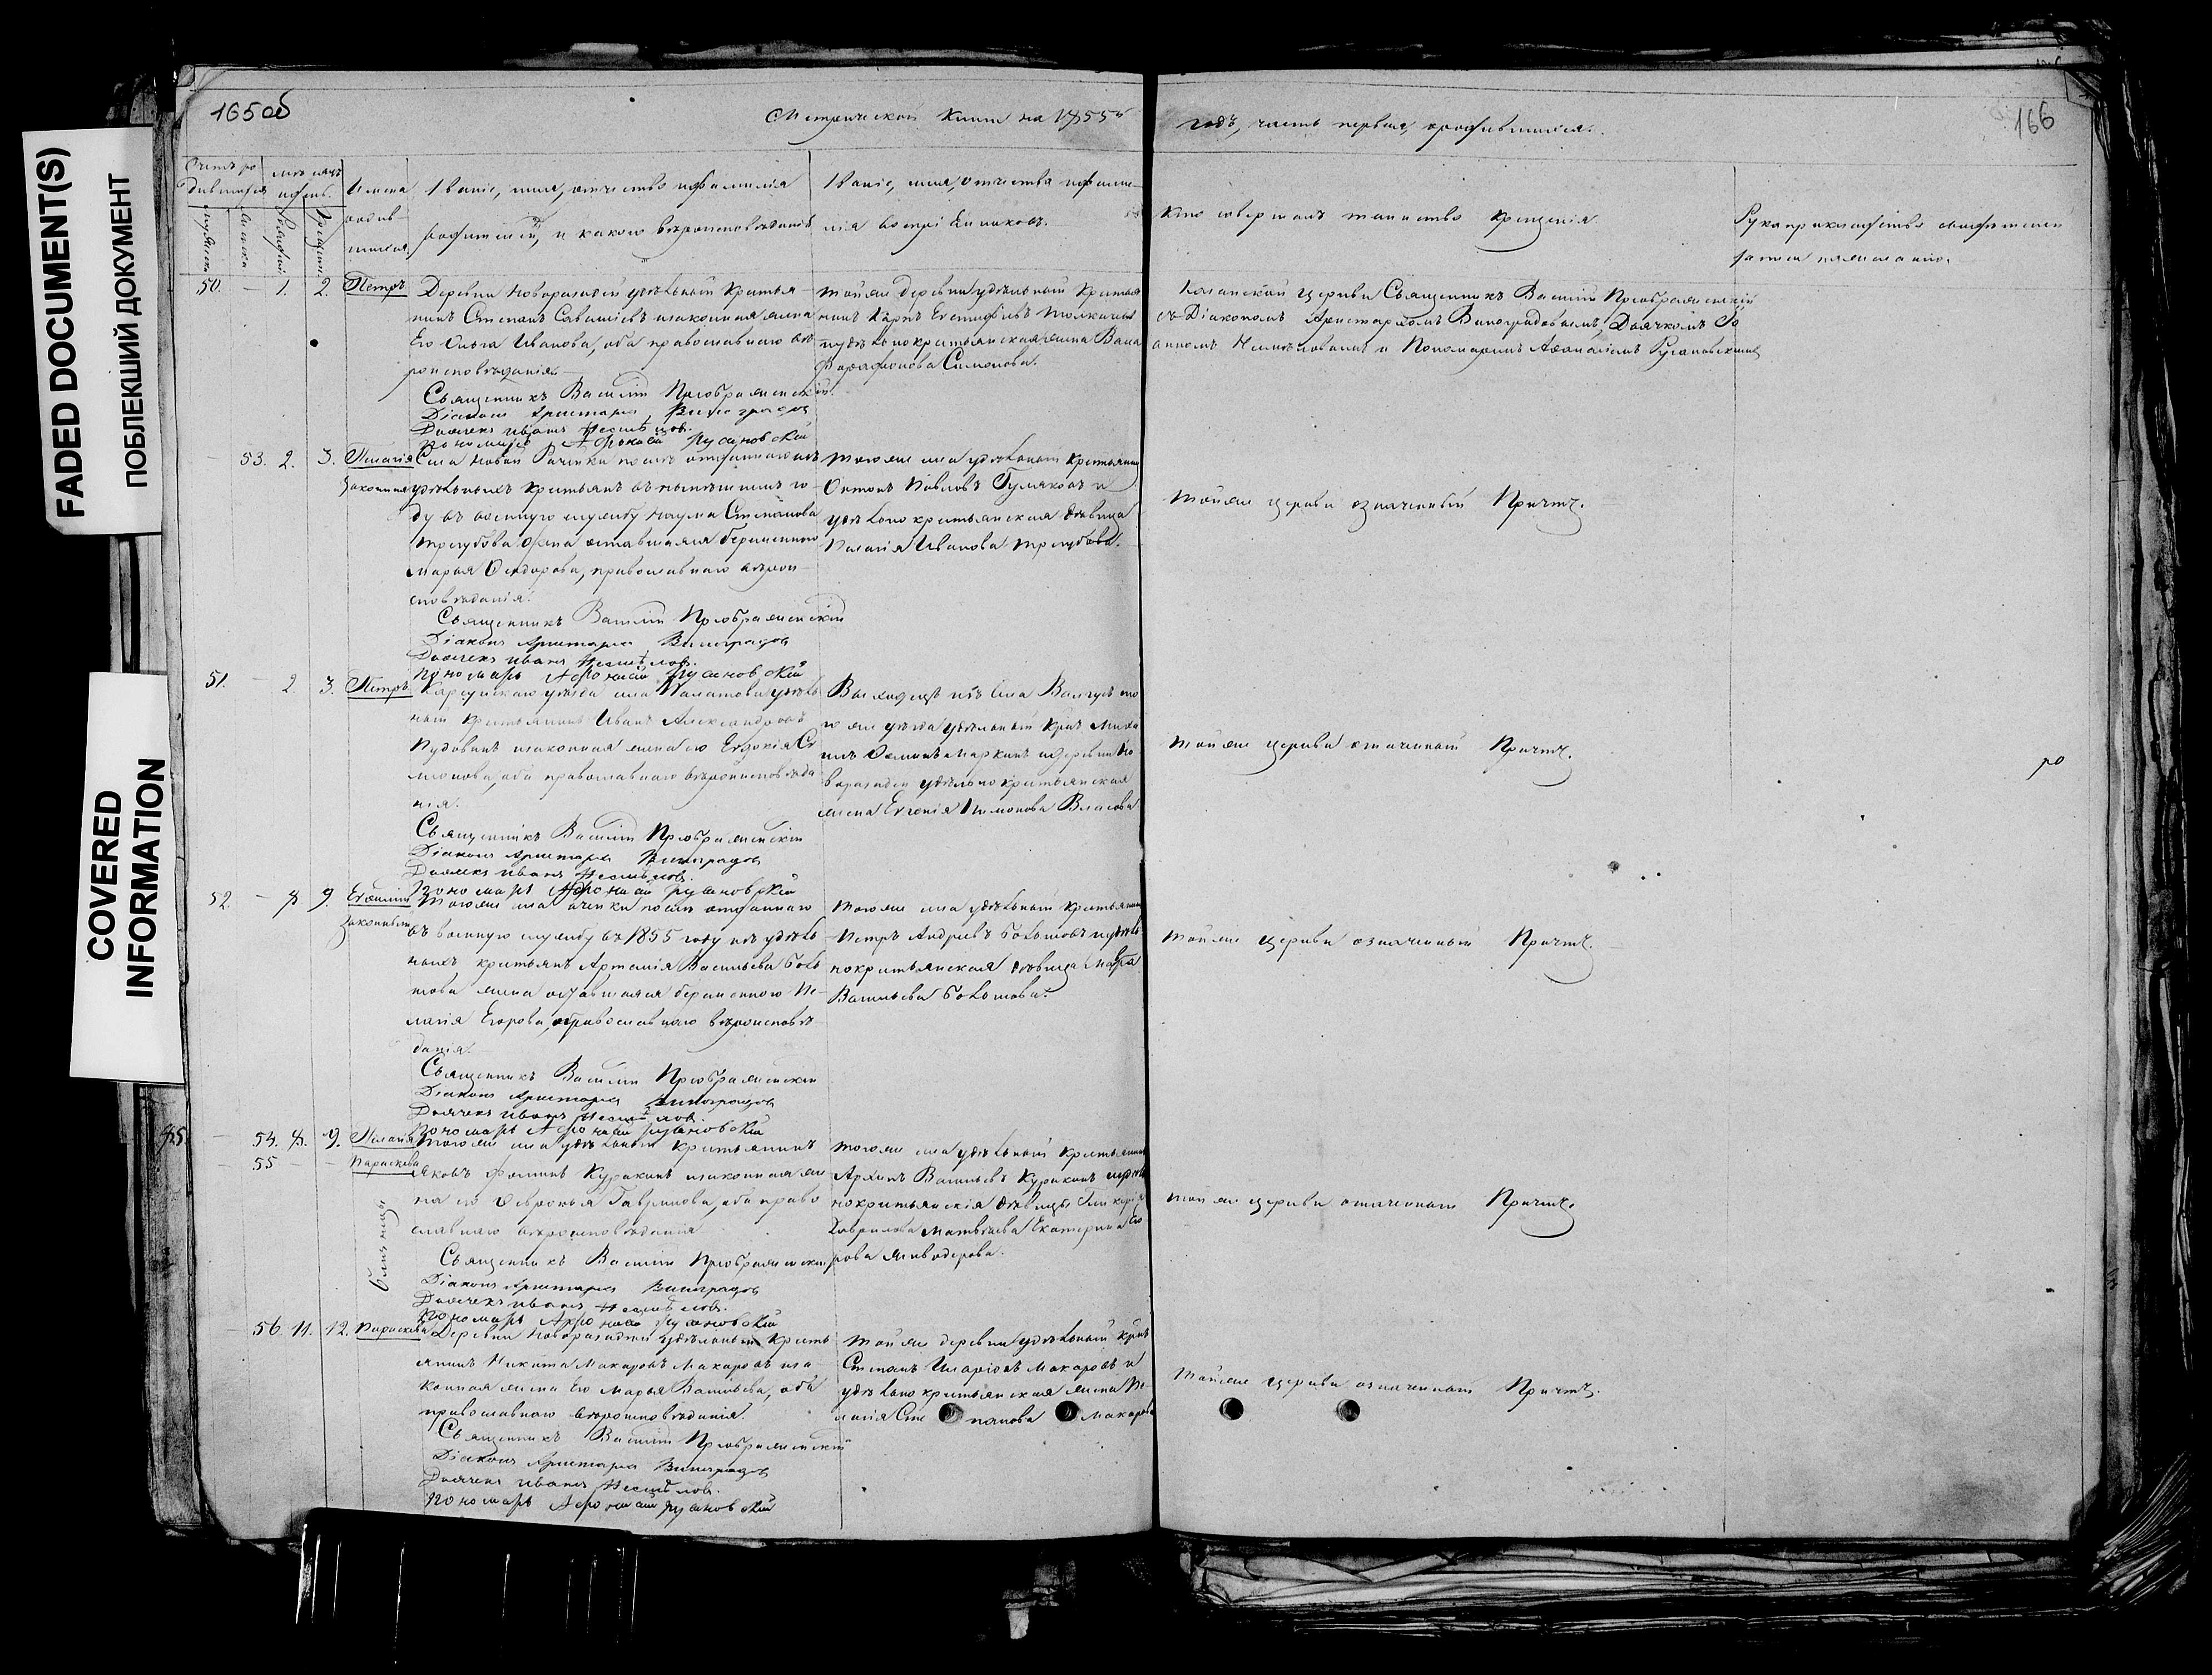 FADED DOCUMENT(S)
ПОБЛЕКШИЙ ДОКУМЕНТ
COVERED
INFORMATION
165об
Метрической книги на 1855й
годъ, часть первая, о родившихся.
166
Счетъ ро
дившихся
мѣсяцъ
и день.
мужеска
женска
рожденія
крещенія
Имена
родив
шихся.
Званіе, имя, отчество и фамилія
родителей, и какого вѣроисповѣданія
Званіе, имя, отчество и фами-
лія воспріемниковъ.
Кто совершалъ таинство крещенія.
Рукоприкладство свидѣтелей
записи по желанію.
50. — 1. 2. Петръ
Деревни Новоразадей удѣльный крестья-
нинъ Степанъ Саватіевъ и законная жена
его Ольга Иванова, оба православнаго вѣ
роисповѣданія.
Священникъ Василій Преображенскій
Діаконъ Аристархъ Виноградовъ
Дьячекъ Иванъ
Пономарь Афонасій Русановскій
тойже деревни удѣльный крестья
нинъ Карпъ
и удѣльнокрестьянская жена
Симонова.
Казанской церкви Священникъ Василій Преображенскій
съ Діакономъ Аристархомъ Виноградовымъ, Дьячкомъ Іо
анномъ и Пономаремъ Аѳанасіемъ Русановскимъ
— 53. 2. 3. Пелагія
законная
Села Новой Рачейки послѣ отданнаго изъ
удѣльныхъ крестьянъ въ нынѣшнемъ го-
ду въ военную службу Наума Степанова
жена оставшаяся беременною
Марья Ѳедорова, православнаго вѣрои-
сповѣданія.
Священникъ Василій Преображенскій
Діаконъ Аристархъ Виноградовъ
Дьячекъ Иванъ
Пономарь Афонасій Русановскій
тогоже села удѣльный крестьянинъ
Антонъ Павловъ и
удѣльно крестьянская дѣвица
Пелагія Иванова
тойже церкви означенный Причтъ.
51. — 2. 3. Петръ
уѣзда села удѣль
ный крестьянинъ Иванъ Александровъ
и законная жена его Евдокія Си
монова, оба православнаго вѣроисповѣда
нія.
Священникъ Василій Преображенскій
Діаконъ Аристархъ Виноградовъ
Дьячекъ Иванъ
Пономарь Афонасій Русановскій
села то
гоже уѣзда удѣльный крест. Миха
илъ и деревни Но
воразадей удѣльнокрестьянская
жена Евгенія Власова
тойже церкви означенный Причтъ.
52. — 8 9. Евѳимій
законный
Тогоже села послѣ отданнаго
въ военную службу въ 1855 году изъ удѣль
ныхъ крестьянъ Артемія Васильева Боль
шова жена оставшаяся беременною Пе-
лагія Егорова, православнаго вѣроисповѣ-
данія.
Священникъ Василій Преображенскій
Діаконъ Аристархъ Виноградовъ
Дьячекъ Иванъ
Пономарь Афонасій Русановскій
тогоже села удѣльный крестьянинъ
Петръ Андреевъ Большовъ и удѣль
нокрестьянская дѣвица
Васильева Большова.
тойже церкви означенный Причтъ.
— 54. 8. 9. Пелагія
— 55 — — Параскева
близнецы
Тогоже села удѣльный крестьянинъ
Яковъ Ѳоминъ Куракинъ и законная же
на его Гаврилова, оба право
славнаго вѣроисповѣданія
Священникъ Василій Преображенскій
Діаконъ Аристархъ Виноградовъ
Дьячекъ Иванъ
Пономарь Афонасій Русановскій
тогоже села удѣльный крестьянинъ
Архипъ Васильевъ Куракинъ и удѣль
нокрестьянскія дѣвицы Гликерія
Гаврилова Матвѣева Екатерина Его
рова Живодерова.
тойже церкви означенный Причтъ.
— 56. 11. 12. Параскева
Деревни Новоразадей удѣльный кресть
янинъ Никита Макаровъ Макаровъ и за-
конная жена его Марья Васильева, оба
православнаго вѣроисповѣданія.
Священникъ Василій Преображенскій
Діаконъ Аристархъ Виноградовъ
Дьячекъ Иванъ
Пономарь Афонасій Русановскій
тойже деревни удѣльный крест.
Степанъ Иларіовъ Макаровъ и
удѣльно крестьянская жена Пе
лагія Степанова Макарова
тойже церкви означенный Причтъ.